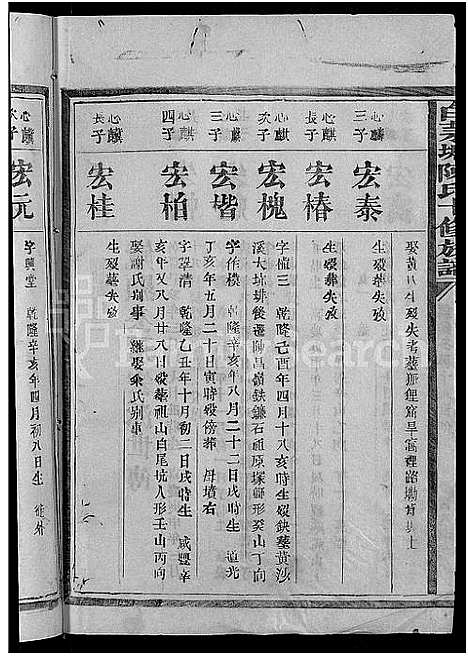 陳氏
修族譜
娶黃八
殁失考葬
心麒
三子
宏泰
生殁葬失攷
心麒
長子
宏椿
生殁葬失攷
心麒
次子
宏槐
字植三 乾隆己酉年四月十八亥時生殁缺葬黃沙
溪大坑埠後遷陽昌嶺鉄鐮石祖原塚獅形癸山丁向
心麒
三子
宏楷
字作模 乾隆辛亥年八月二十二日戌時生 道光
丁亥年五月二十日寅時殁傍葬 母墳右
心麒
四子
宏柏
字翠清 乾隆乙丑年十月初二日戌時生 咸豐辛
亥年又八月廿八日殁葬祖山白尾坑人形壬山丙向
娶謝氏别事 繼娶余氏别事
心麟
長子
宏桂
生殁葬失攷
心麟
次子
宏元
字興堂 乾隆辛亥年四月初八日生 徙外